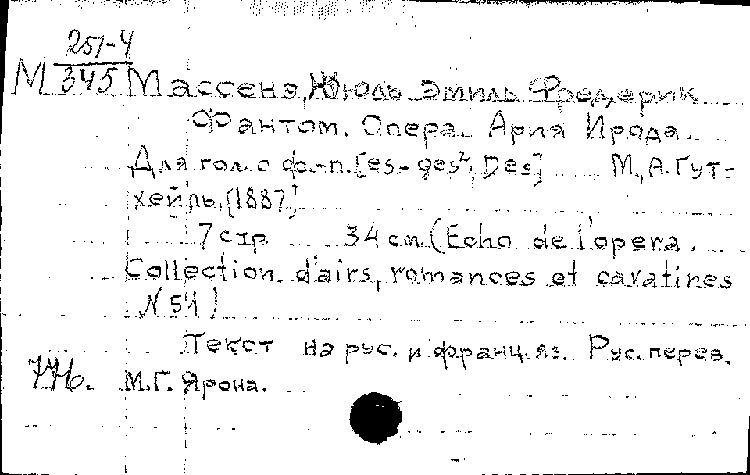 М 251-4/345 Массенэ, Жюль Эмиль Фредерик
Фантом. Опера. Ария Ирода.
Для гол. с ф.-п. [es-ges², Des] М., А. Гут-
хейль, [1887]
7 стр 34 см (Echo de l'opera.
Collection d'airs, romances et cavatines
N 51)
Текст на рус. и франц. яз. Рус. перев.
М.Г. Ярона.